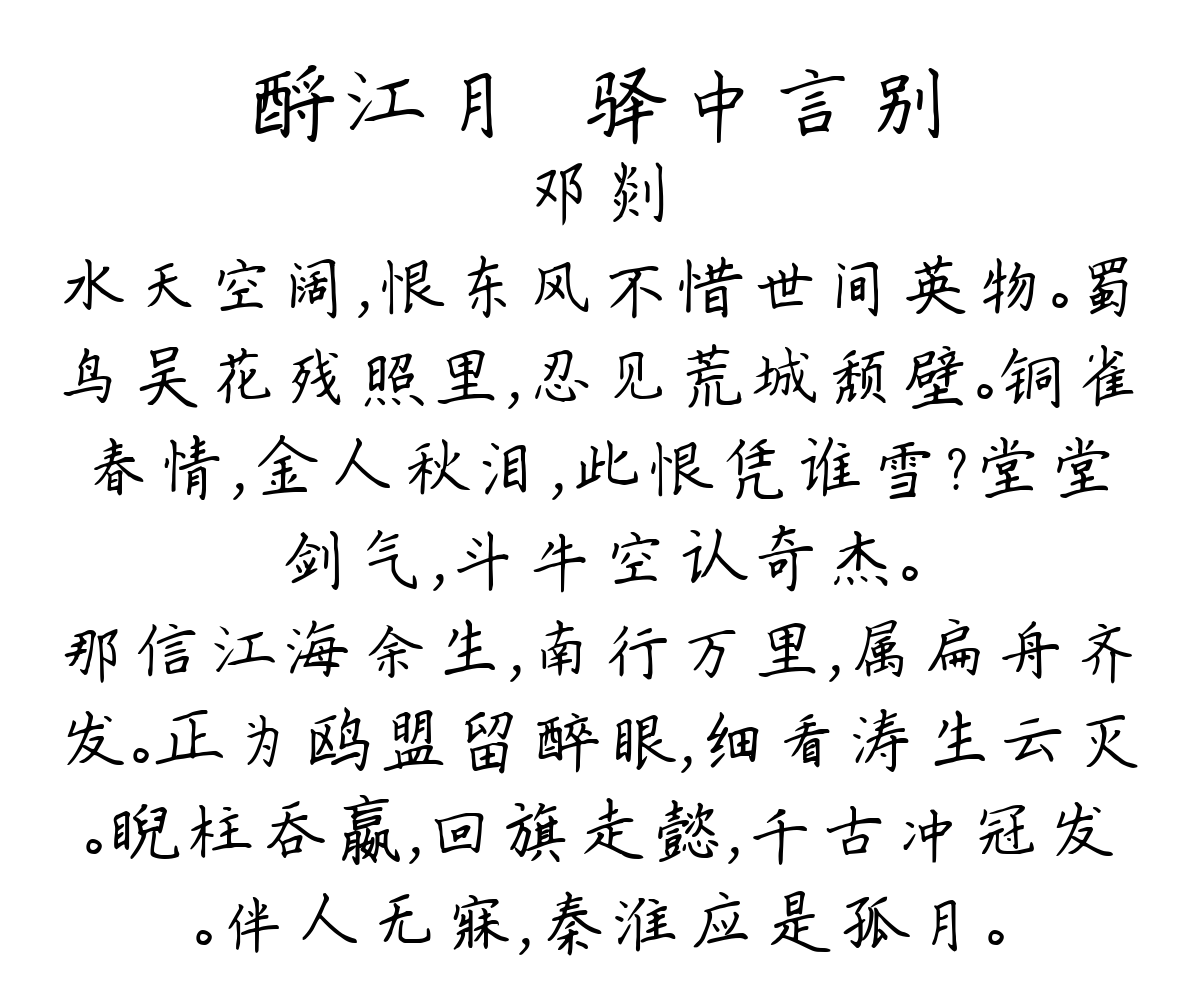 酹江月 驿中言别
邓剡
水天空阔,恨东风不惜世间英物。蜀
鸟吴花残照里,忍见荒城颓壁。铜雀
春情,金人秋泪,此恨凭谁雪?堂堂
剑气,斗牛空认奇杰。
那信江海余生,南行万里,属扁舟齐
发。正为鸥盟留醉眼,细看涛生云灭
。睨柱吞嬴,回旗走懿,千古冲冠发
。伴人无寐,秦淮应是孤月。